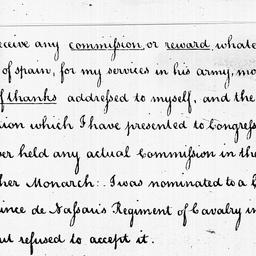 eceive any commission, or reward whate
of spain, for my services in his army, mo
f thanks addressed to myself, and the
ion which I have presented to Congress
er held any actual Commission in the
her Monarch: I was nominated to a
ince de Nassau's Regiment of Cavalry in
ut refused to accept it.